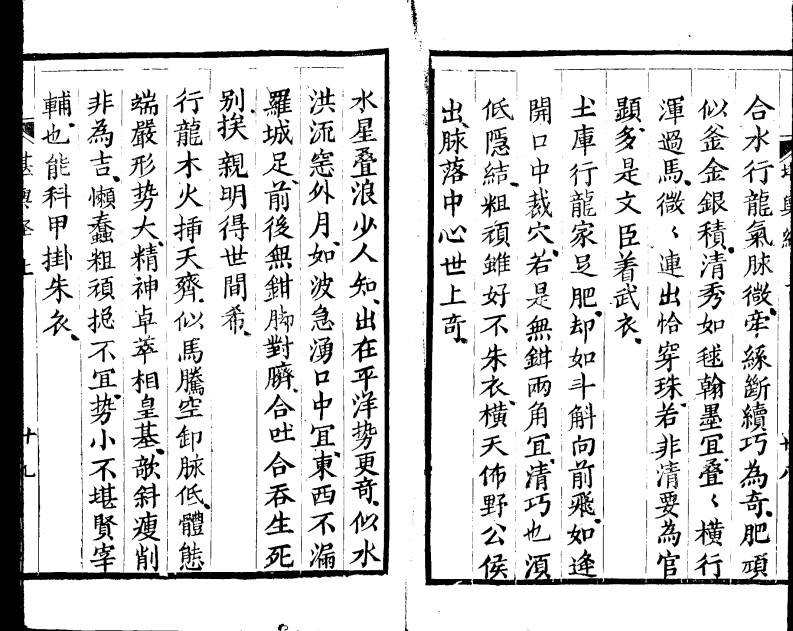 合水行龍氣脉微、牽絲斷續巧為奇、肥頑
似釜金銀積、清秀如毬翰墨冝、叠〻橫行
渾過馬、微〻連出恰穿珠、若非清要為官
顕、多是文臣着武衣、
土庫行龍家足肥、却如斗斛向前飛、如逢
開口中裁穴、若是無鉗兩角冝、清巧也湏
低隱結、粗頑雖好不朱衣、橫天佈野公侯
出、脉落中心世上竒、
水星叠浪少人知、出在平洋势更竒、似水
洪流窓外月、如波急湧口中冝、東西不漏
羅城足、前後無鉗脚對臍、合吐合吞生死
别、挨親明得世間希、
行龍木火揷天齊、似馬騰空卸脉低、體態
端嚴形势大、精神卓萃相皇基、欹斜瘦削
非為吉、懶蠢粗頑揔不冝、势小不堪賢宰
輔、也能科甲掛朱衣、
十九